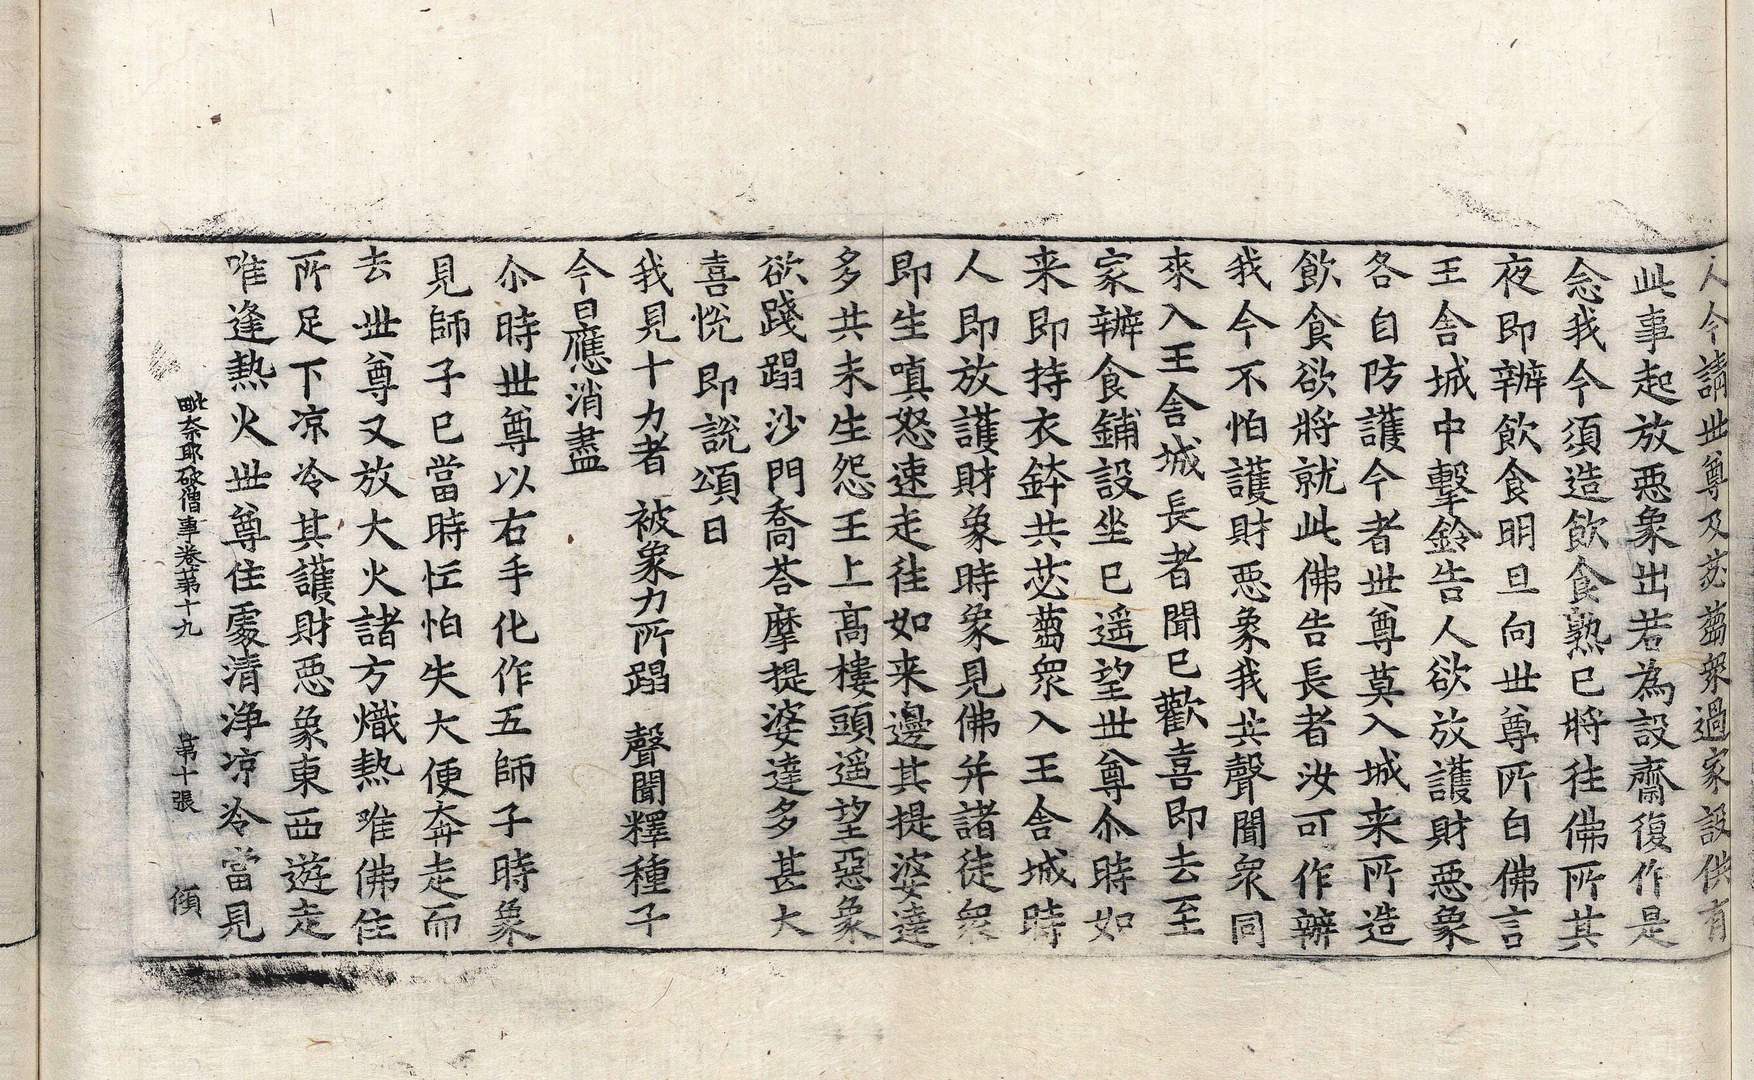 人今請世尊及苾蒭衆過家設供有
此事起放悪象出若為設齋復作是
念我今須造飲食熟已將往佛所其
夜即辦飲食明旦向世尊所白佛言
王舍城中擊鈴告人欲放護財悪象
各自防護今者世尊莫入城来所造
飲食欲將就此佛告長者汝可作辦
我今不怕護財悪象我共聲聞衆同
來入王舍城長者聞已歡喜即去至
家辦食鋪設坐已遥望世尊尒時如
来即持衣鉢共苾蒭衆入王舍城時
人即放護財象時象見佛并諸徒衆
即生嗔怒速走往如来邊其提婆達
多共未生怨王上高樓頭遥望惡象
欲踐蹋沙門喬荅摩提婆達多甚大
喜恱即說頌曰
我見十力者 被象力所蹋 聲聞釋種子
今日應消盡
尒時世尊以右手化作五師子時象
見師子已當時恇怕失大便奔走而
去世尊又放大火諸方熾熱唯佛住
所足下凉冷其護財悪象東西遊走
唯逢熱火世尊住處清浄凉冷當見
毗奈耶破僧事卷苐十九 苐十張 傾